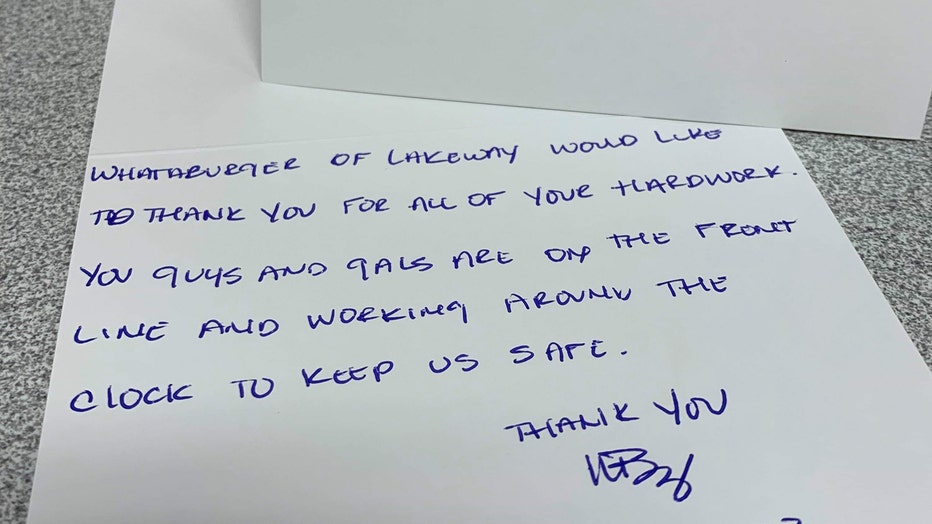 WHATABURGER OF LAKEWAY WOULD LIKE
TO THANK YOU FOR ALL OF YOUR HARDWORK.
YOU GUYS AND GALS ARE ON THE FRONT
LINE AND WORKING AROUND THE
CLOCK TO KEEP US SAFE.
THANK YOU